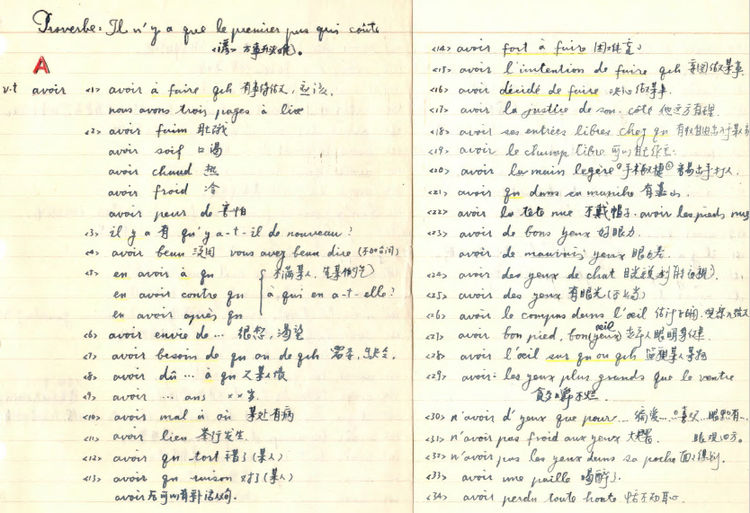 Proverbe: Il n'y a que le premier pas qui coûte
<谚> 万事开头难。
A
v.t avoir <1> avoir à faire qch 有事情做, 应该.
nous avons trois pages à lire
<2> avoir faim 肚饿
avoir soif 口渴
avoir chaud 热
avoir froid 冷
avoir peur de 害怕
<3> il y a 有 qu'y a-t-il de nouveau?
<4> avoir beau 没用 vous avez beau dire
<5> en avoir à qn 不满某人, 生某人的气
en avoir contre qn à qui en a-t-elle?
en avoir après qn
<6> avoir envie de … 很想, 渴望
<7> avoir besoin de qn ou de qch 需要,
<8> avoir dû … à qn 欠某人债
<9> avoir … ans ××岁
<10> avoir mal à où 某处有病
<11> avoir lieu 举行发生.
<12> avoir qn tort 错了(某人)
<13> avoir qn raison 对了(某人)
avoir 后可以有补语从句.
<14> avoir fort à faire 困难
<15> avoir l'intention de faire qch 意图做某事.
<16> avoir décidé de faire 决心做某事.
<17> avoir la justice de son côté 他这方有理.
<18> avoir ses entrées libres chez qn 有权自由出入于某家
<19> avoir le champ libre 可以自由
<20> avoir la main légère ①手松敏捷 ②容易出手打人
<21> avoir qn dans sa manche 有靠山.
<22> avoir la tête nue 不戴帽子. avoir les pieds nus
<23> avoir de bons yeux 好眼力.
avoir de mauvais yeux 眼力差.
<24> avoir des yeux de chat 目光锐利
<25> avoir des yeux 有眼光
<26> avoir le compas dans l'œil 估计正确,
<27> avoir bon pied, bon œil 老年人眼明身健.
<28> avoir l'œil sur qn ou qch 监视某人某物
<29> avoir les yeux plus grands que le ventre
贪多嚼不烂.
<30> n'avoir d'yeux que pour… 偏爱…
<31> n'avoir pas froid aux yeux 大胆.
<32> n'avoir pas les yeux dans sa poche
<33> avoir une paille 喝醉了.
<34> avoir perdu toute honte 恬不知耻.